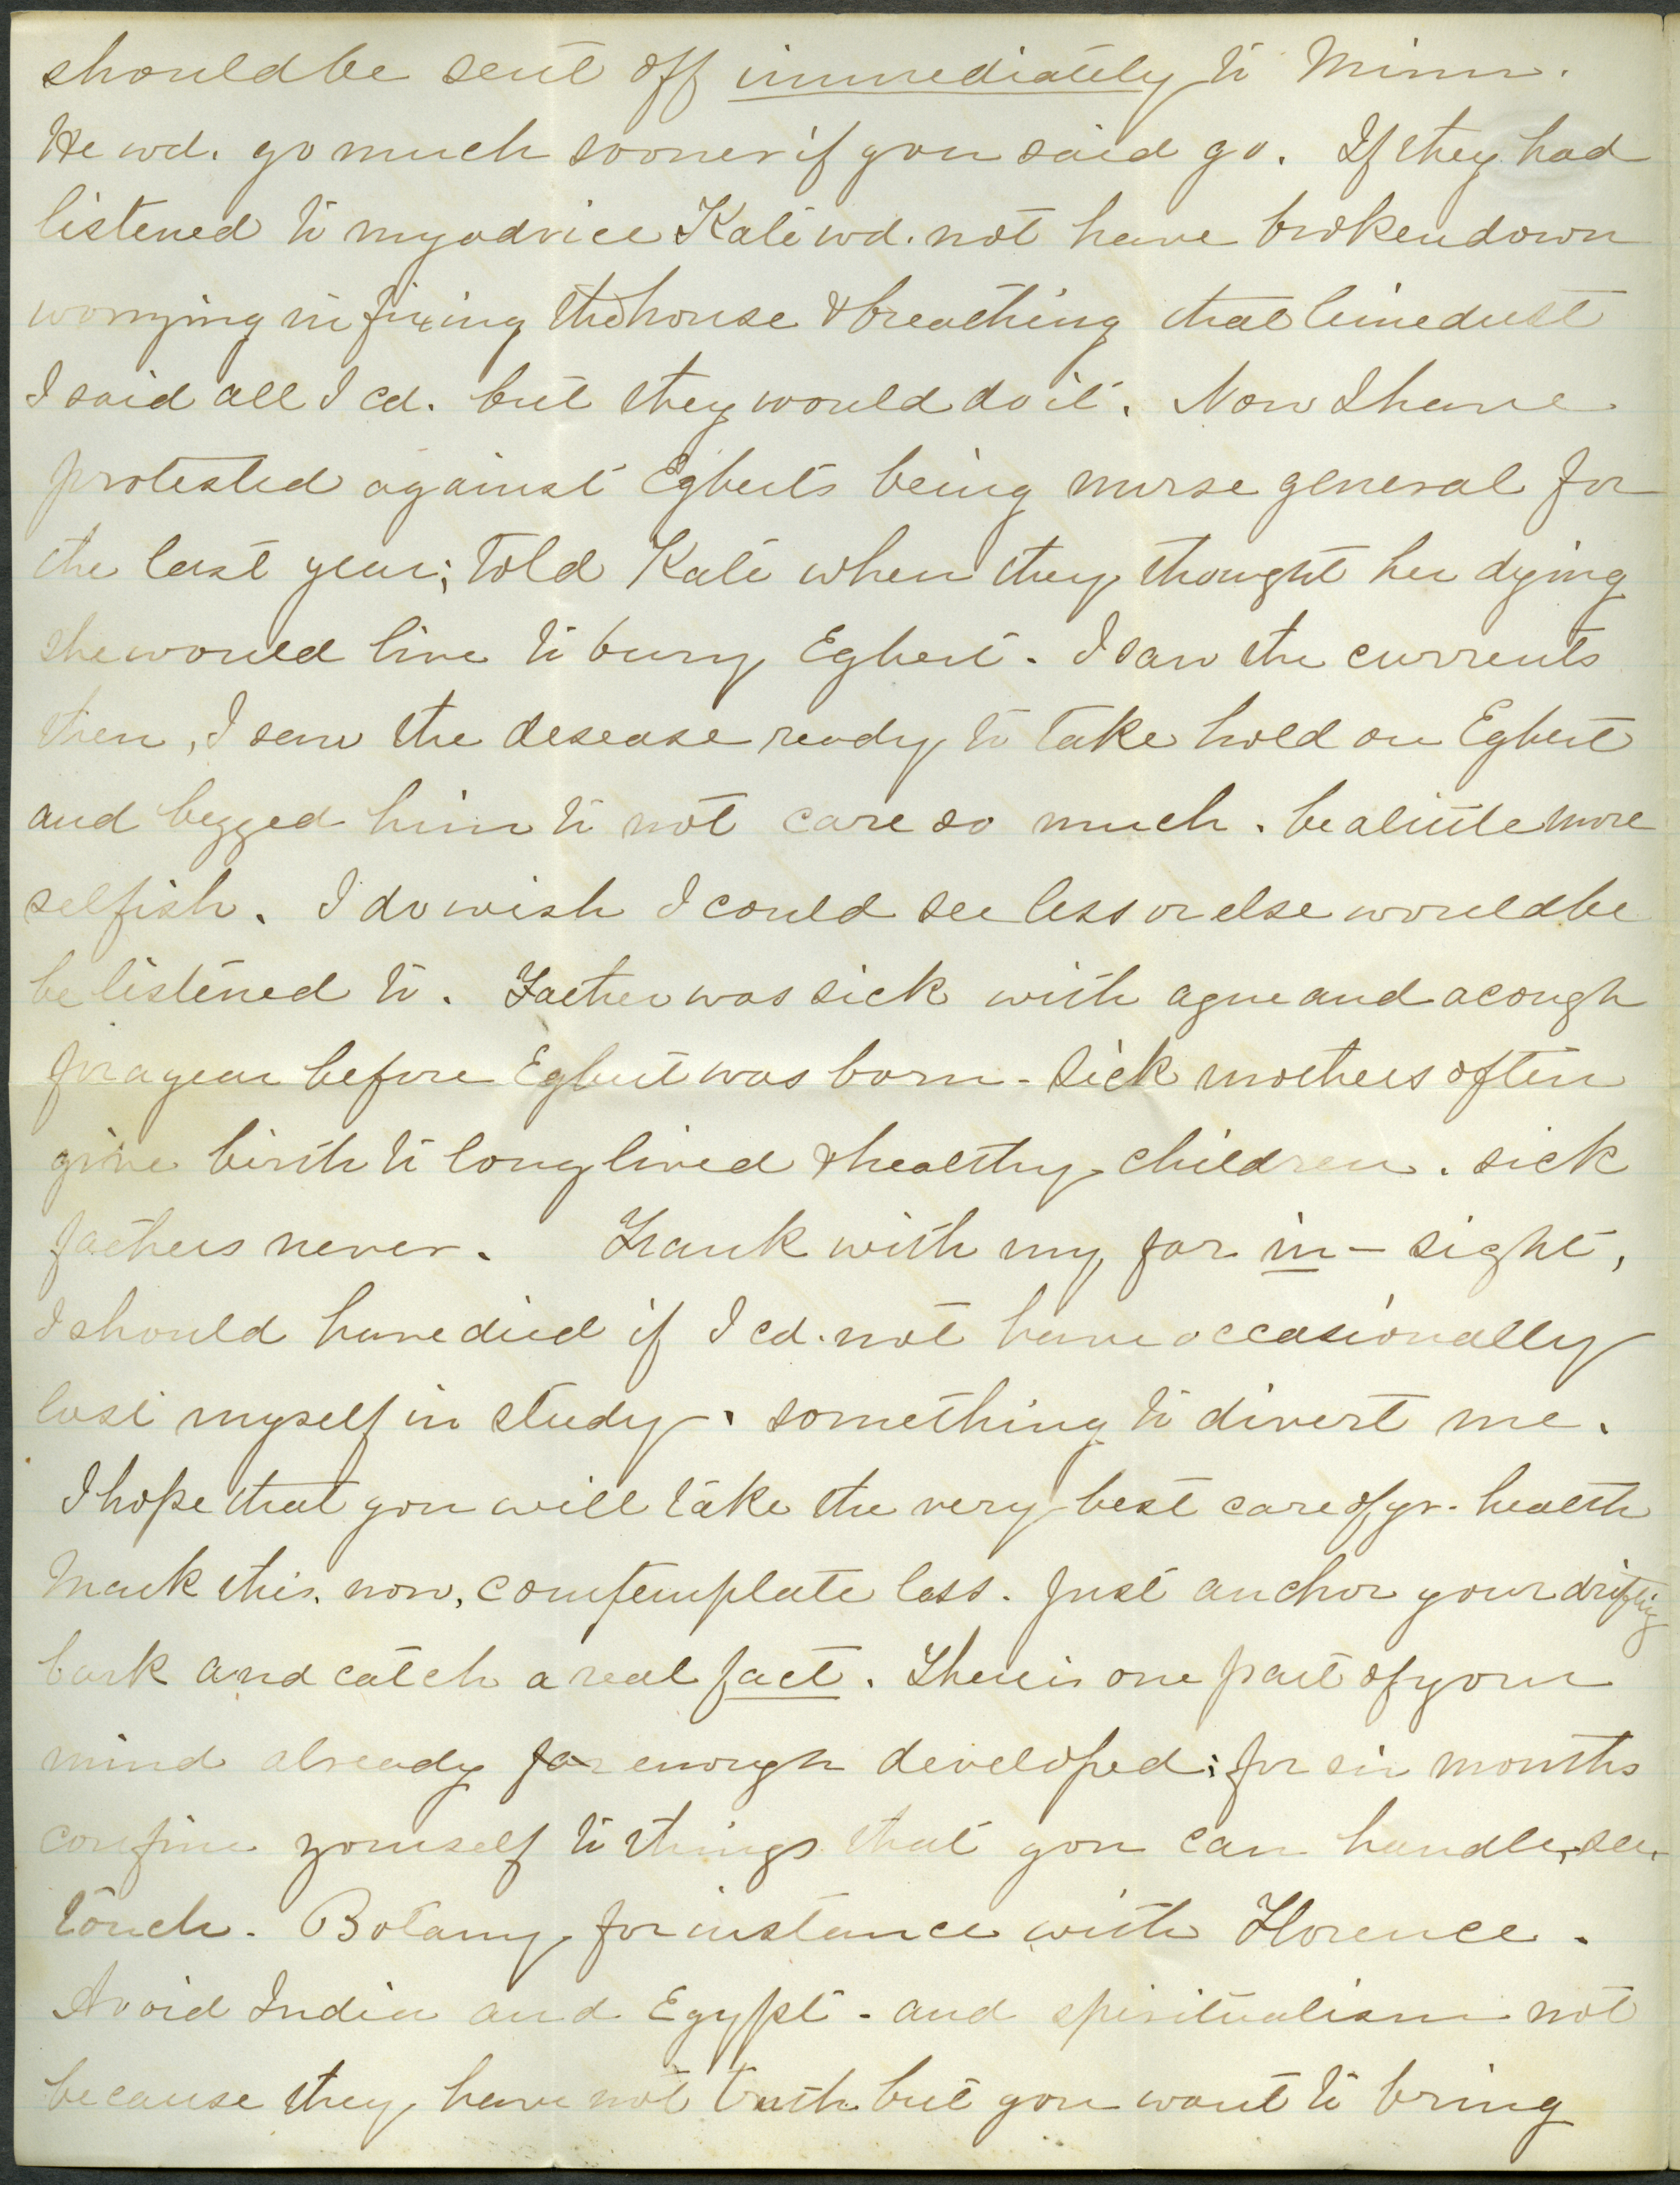 should be sent off immediately to Minn.
He wd. go much sooner if you said go. If they had
listened to my advice Kate wd. not have broken down
worrying in fixing the house & breathing that lime dust
I said all I cd. but they would do it. Now I have
protested against Egberts being nurse general for
the last year; Told Kate when they thought her dying
she would live to bury Egbert. I saw the currents
then, I saw the desease ready to take hold on Egbert
and begged him to not care so much. be a little more
selfish. I do wish I could see less or else would be
be listened to. Father was sick with ague and a cough
for a year before Egbert was born - sick mothers often
give birth to long lived & healthy children. sick
fathers never. Frank with my far in-sight,
I should have died if I cd. not have occasionally
lost myself in study. something to divert me.
I hope that you will take the very best care of yr. health
Mark this, now, comtemplate less. Just anchor your drifting
bark and catch a real fact. There is one part of your
mind already far enough developed; for six months
confine yourself to things that you can handle, see,
touch. Botany for instance with Florence.
Avoid India and Egypt - and spiritualism not
because they have not truth but you want to bring